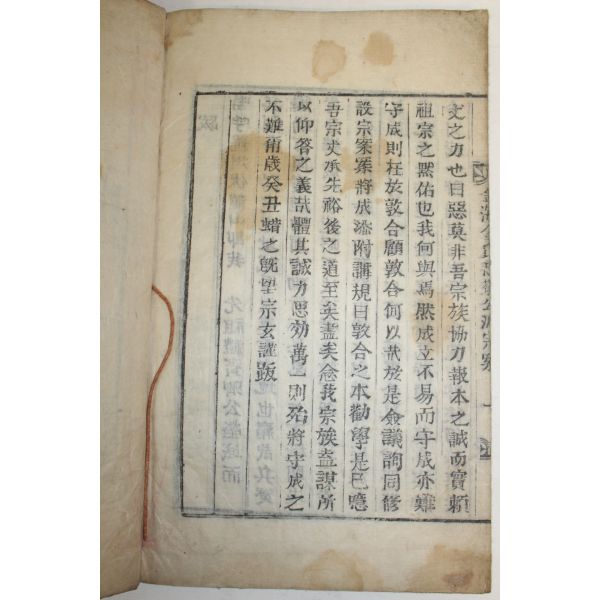 文之力也曰惡莫非吾宗族協力報本之誠而實賴
祖宗之黙佑也我何與焉然成立不易而守成亦難
守成則在於敦合顧敦合何以哉於是僉議詢同修
設宗案案將成添附講規曰敦合之本勸學是已噫
吾宗丈承先裕後之道至矣盡矣念我宗族盍謀所
以仰答之義哉體其誠力思効萬一則殆將守成之
不難甭歳癸丑蜡之旣望宗玄謹跋